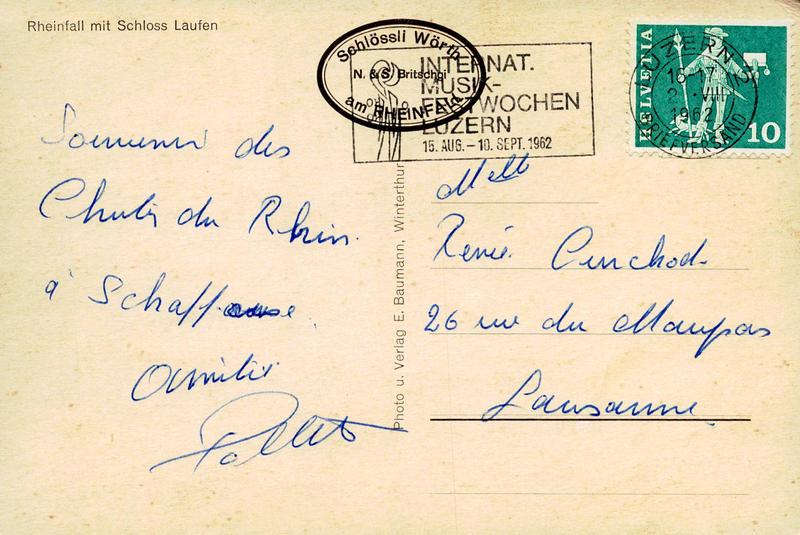 Rheinfall mit Schloss Laufen
Schlössli Wörth
N. & S. Britschgi
am RHEINFALL
INTERNAT.
MUSIK-
FESTWOCHEN
LUZERN
15. AUG. – 10. SEPT. 1962
HELVETIA
10
LUZERN
16-17
VIII
1962
BRIEFVERSAND
Souvenir des
Chutes du Rhin
à Schaffouse.
Amitiés
Photo u. Verlag E. Baumann, Winterthur
Melle
Renée Cuchod
26 rue du Maupas
Lausanne